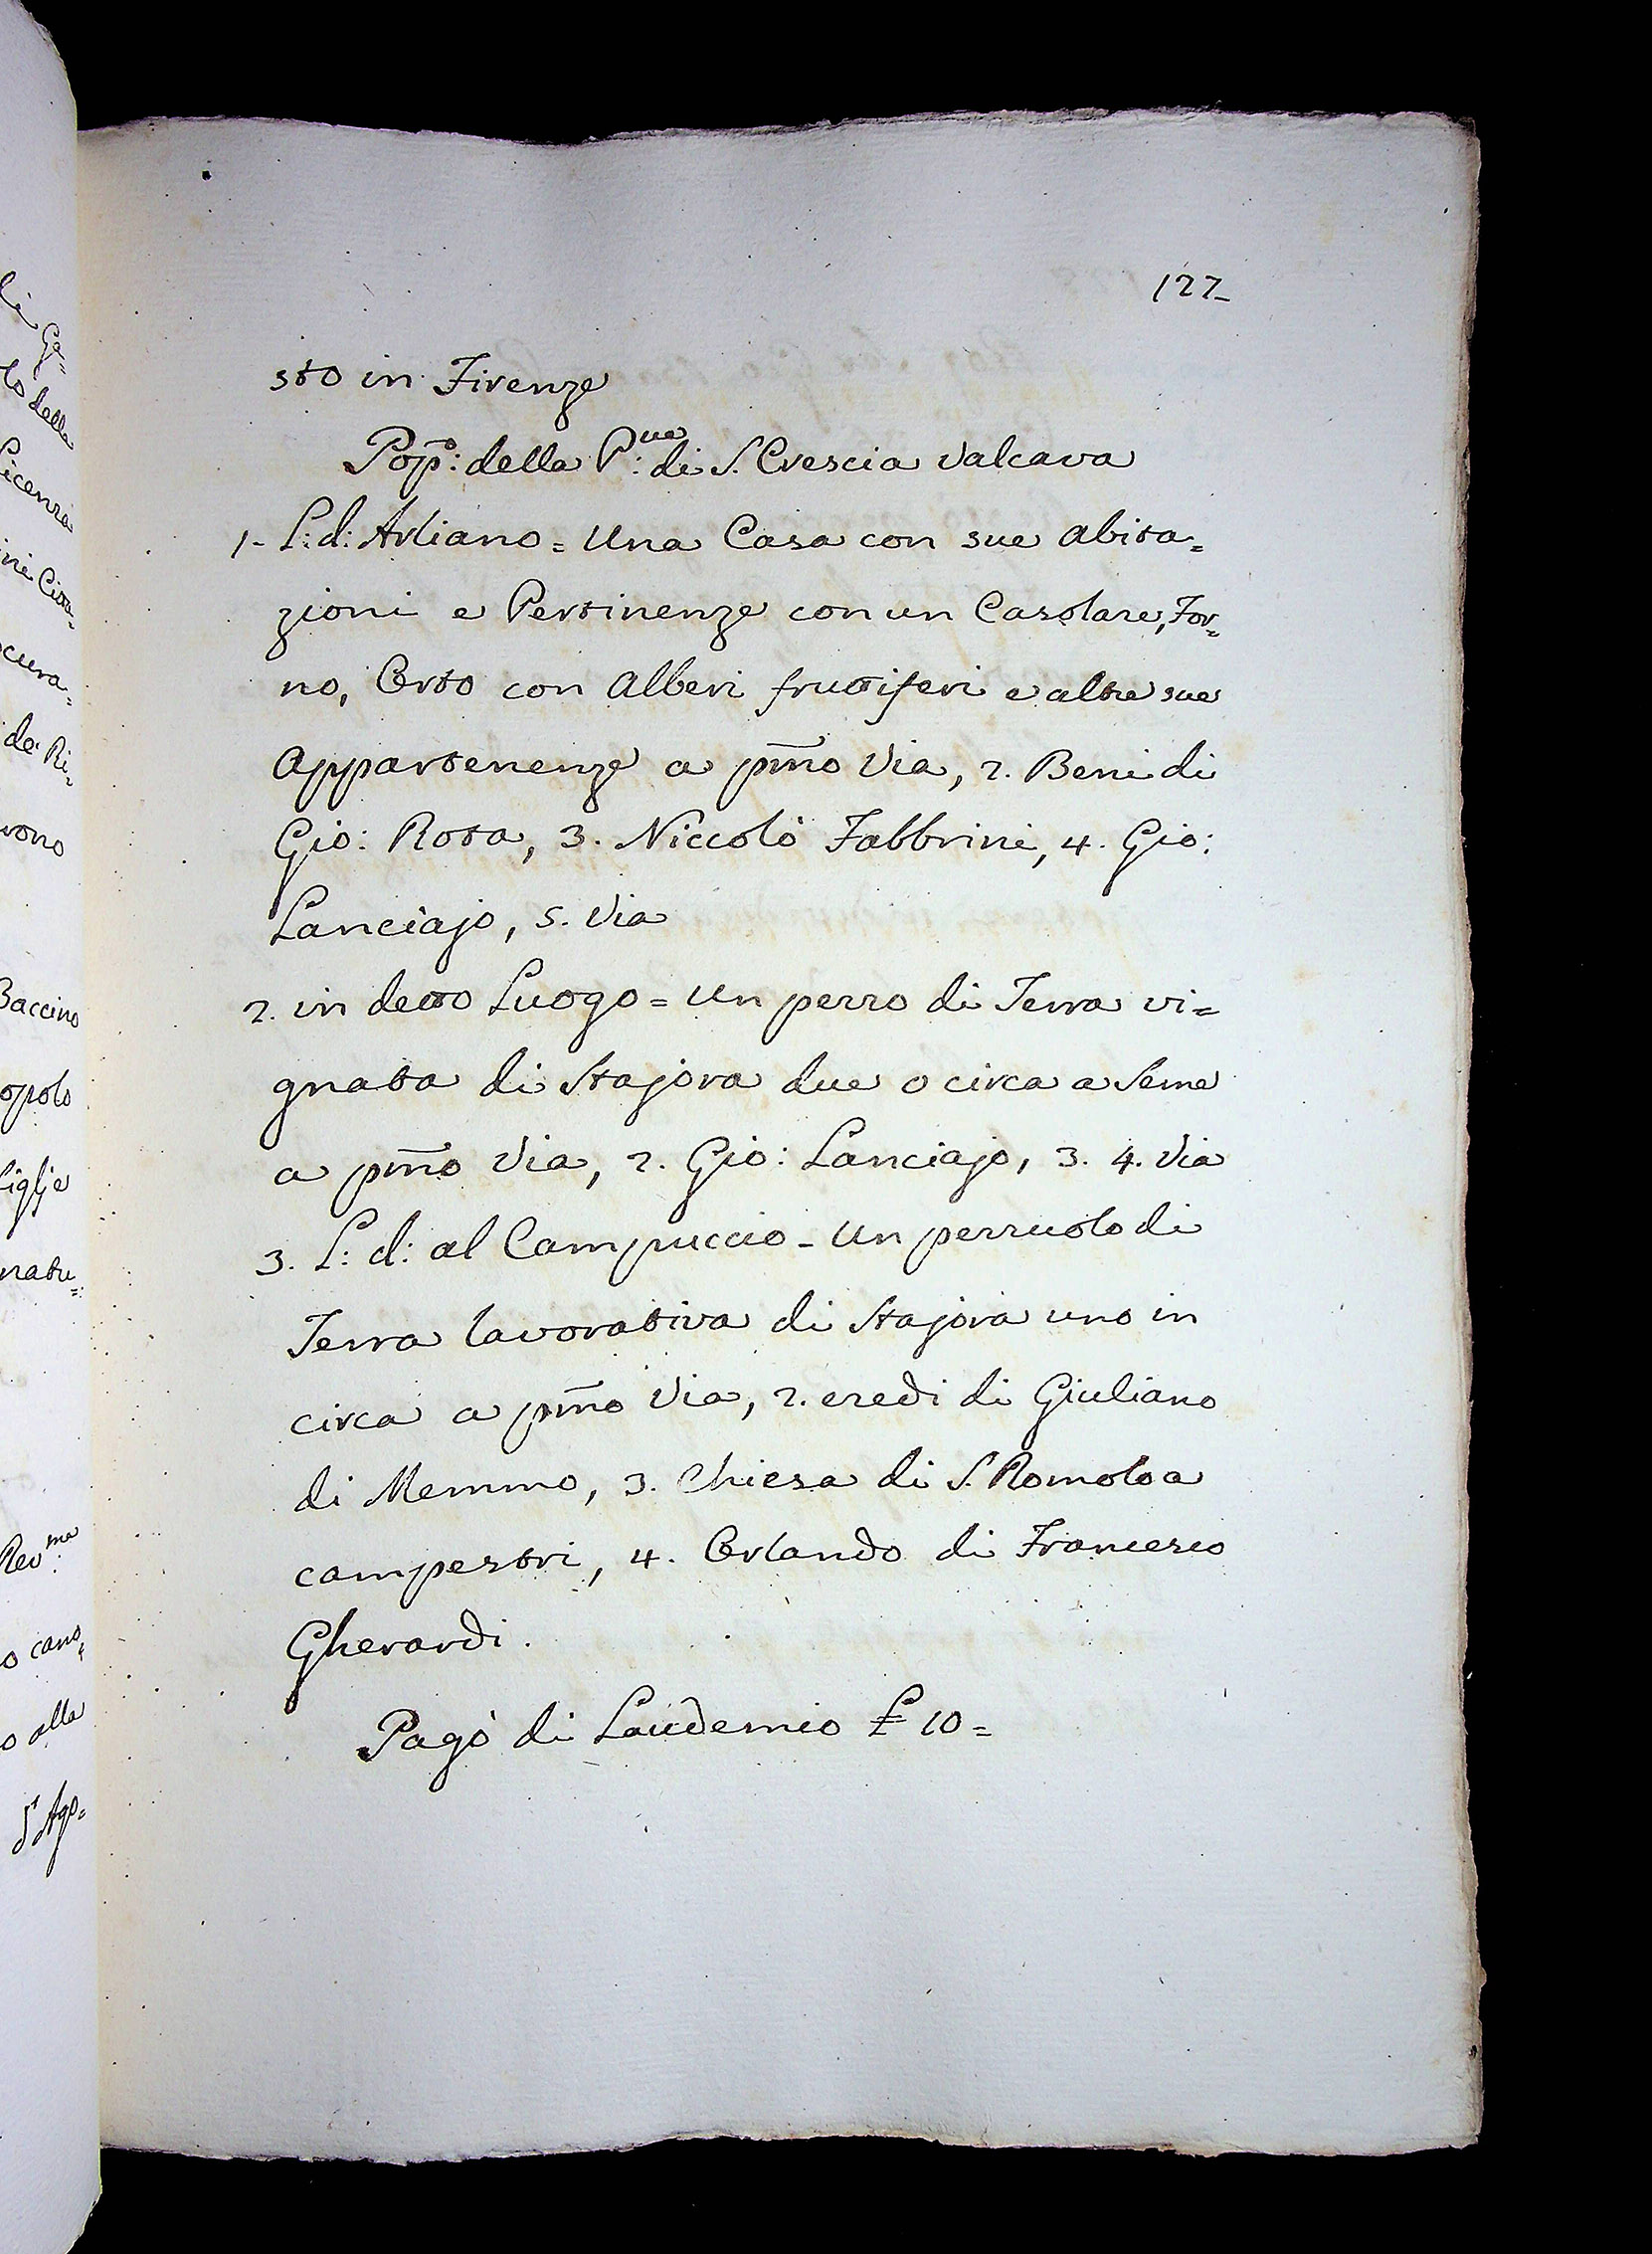 127
sto in Firenze
Pop:º della P:ve di S. Crescia Valcava
1- L: d: Arliano = Una Casa con sue abita=
zioni e Pertinenze con un Casolare, For=
no, Orto con Alberi fruttiferi e altre sue
Appartenenze a pmõ Via, 2. Beni di
Gio: Rota, 3. Niccolò Fabbrini, 4. Gio:
Lanciajo, 5. Via
2. in detto Luogo = Un pezzo di Terra vi=
gnata di Stajora due o circa a Seme
a pmõ Via, 2. Gio: Lanciajo, 3. 4. Via
3. L: d: al Campuccio - Un pezzuolo di
Terra lavorativa di Stajora uno in
circa a pmõ Via, 2. eredi di Giuliano
di Memmo, 3. Chiesa di S. Romolo a
campestri, 4. Orlando di Francesco
Gherardi.
Pagò di Laudemio £ 10 =